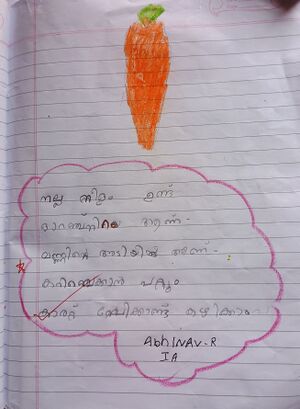 നല്ല നിളം ഉണ്ട്
ഓറഞ്ച്നിറം ആണ്.
മണ്ണിന്റെ അടിയിൽ ആണ്.
കറിവെക്കാൻ പറ്റും
കാരറ്റ് കഴിക്കാം
AbhINAV.R
IA